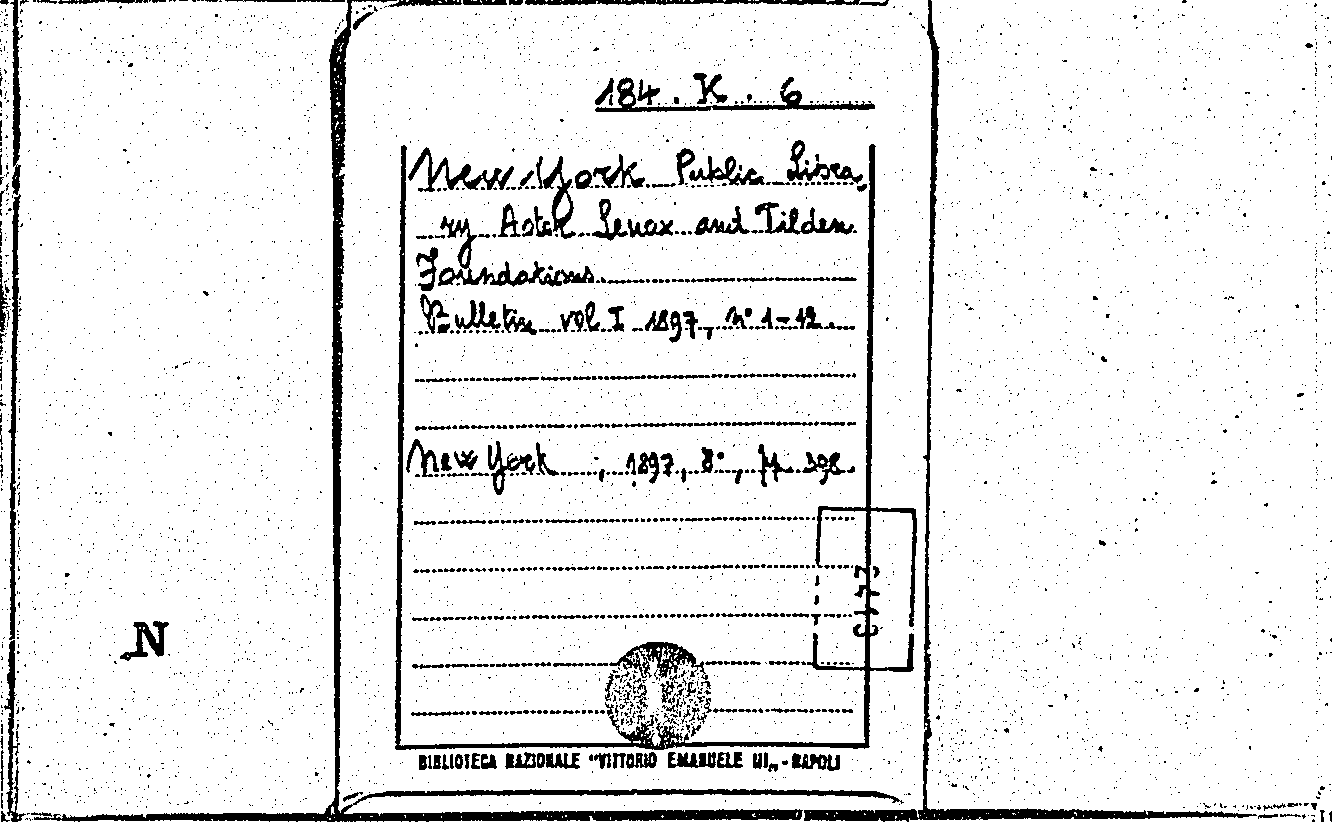 184. K. 6
New York Public Libra-
ry Astor Lenox and Tilden
Foundations
Bulletin vol I 1897, n° 1-12.
New York, 1897, 8°, pp. 398.
N
BIBLIOTECA NAZIONALE "VITTORIO EMANUELE III„ - NAPOLI